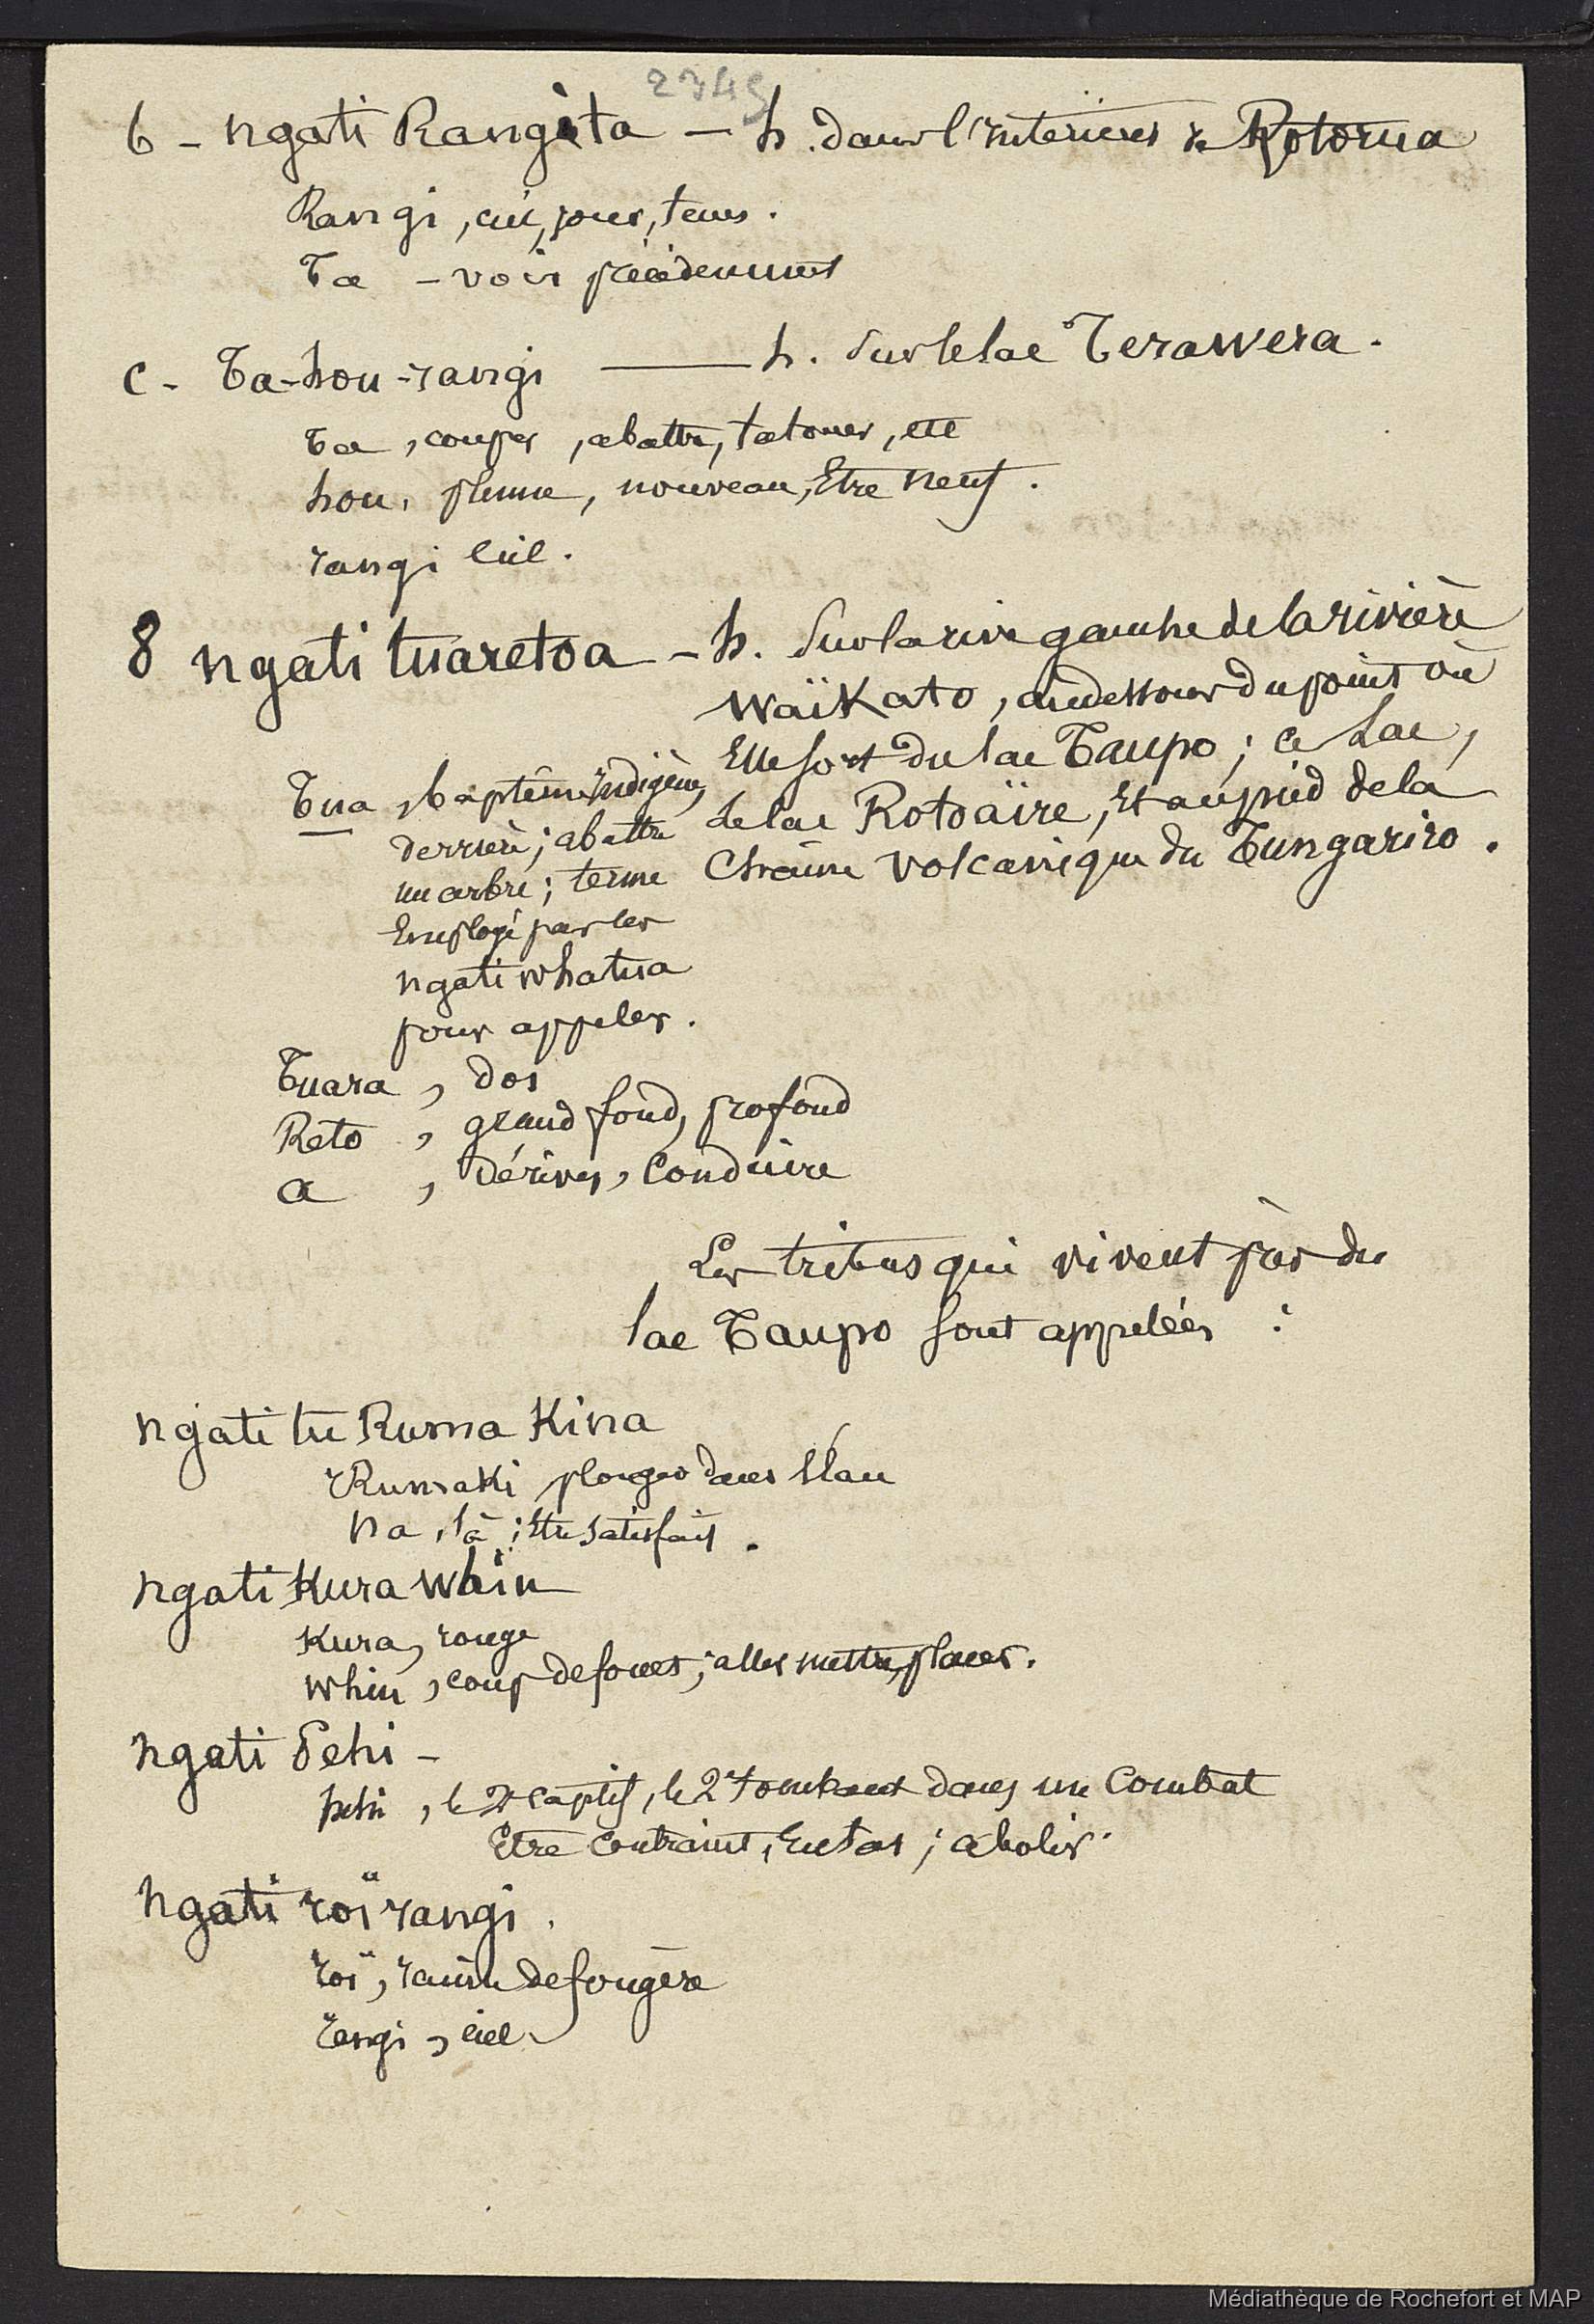 2345
b - ngati Rangita - h. dans l'interieur de Rotorua
Rangi, ciel, jour, tems.
Ta - voir précédemment
c - Ta-hou-rangi — h. sur le lac Terawera.
Ta, couper, abattre, tatouer, etc
hou, plume, nouveau, Etre neuf.
rangi ciel.
8 ngati tuaretoa - h. Sur la rive gauche de la rivière
Waïkato, au dessous du point où
Elle sort du lac Taupo; ce Lac,
le lac Rotoäire, Et au pied de la
Chaîne volcanique du Tungariro.
Tua, baptême indigène,
derrière; abattre
un arbre; terme
Employé par les
ngati whatua
pour appeler.
Tuara, dos
Reto, grand fond, profond
a, dériver, Conduire
Les tribus qui vivent près du
lac Taupo sont appelées :
ngati tu Ruma Kina
Rumaki plonger dans l'Eau
na, là; Etre satisfait.
ngati Kura whiu
Kura, rouge
whiu, coup de fouet; aller mettre, placer.
ngati Pehi -
pehi, le 2e captif, le 2e tombant dans un Combat
Etre contraint, En tas; abolir.
ngati roï rangi.
roï, racine de fougère
rangi, ciel
Médiathèque de Rochefort et MAP